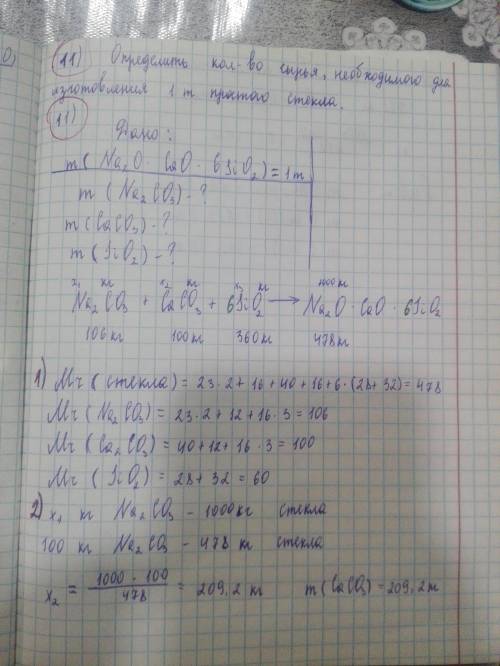 11) Определить кол-во сырья, необходимого для
изготовления 1 т простого стекла.
11)
Дано:
m(Na₂O · CaO · 6SiO₂) = 1т
m(Na₂CO₃) - ?
m(CaCO₃) - ?
m(SiO₂) - ?
x₁ кг x₂ кг x₃ кг 1000 кг
Na₂CO₃ + CaCO₃ + 6SiO₂ → Na₂O · CaO · 6SiO₂
106кг 100кг 360кг 478кг
1) Mr(стекла) = 23·2+16+40+16+6·(28+32) = 478
Mr(Na₂CO₃) = 23·2+12+16·3 = 106
Mr(Ca₂CO₃) = 40+12+16·3 = 100
Mr(SiO₂) = 28+32 = 60
2) x₁ кг Na₂CO₃ - 1000кг стекла
100 кг Na₂CO₃ - 478 кг стекла
x₂ = 1000 · 100 / 478 = 209,2 кг m(CaCO₃) = 209,2 кг